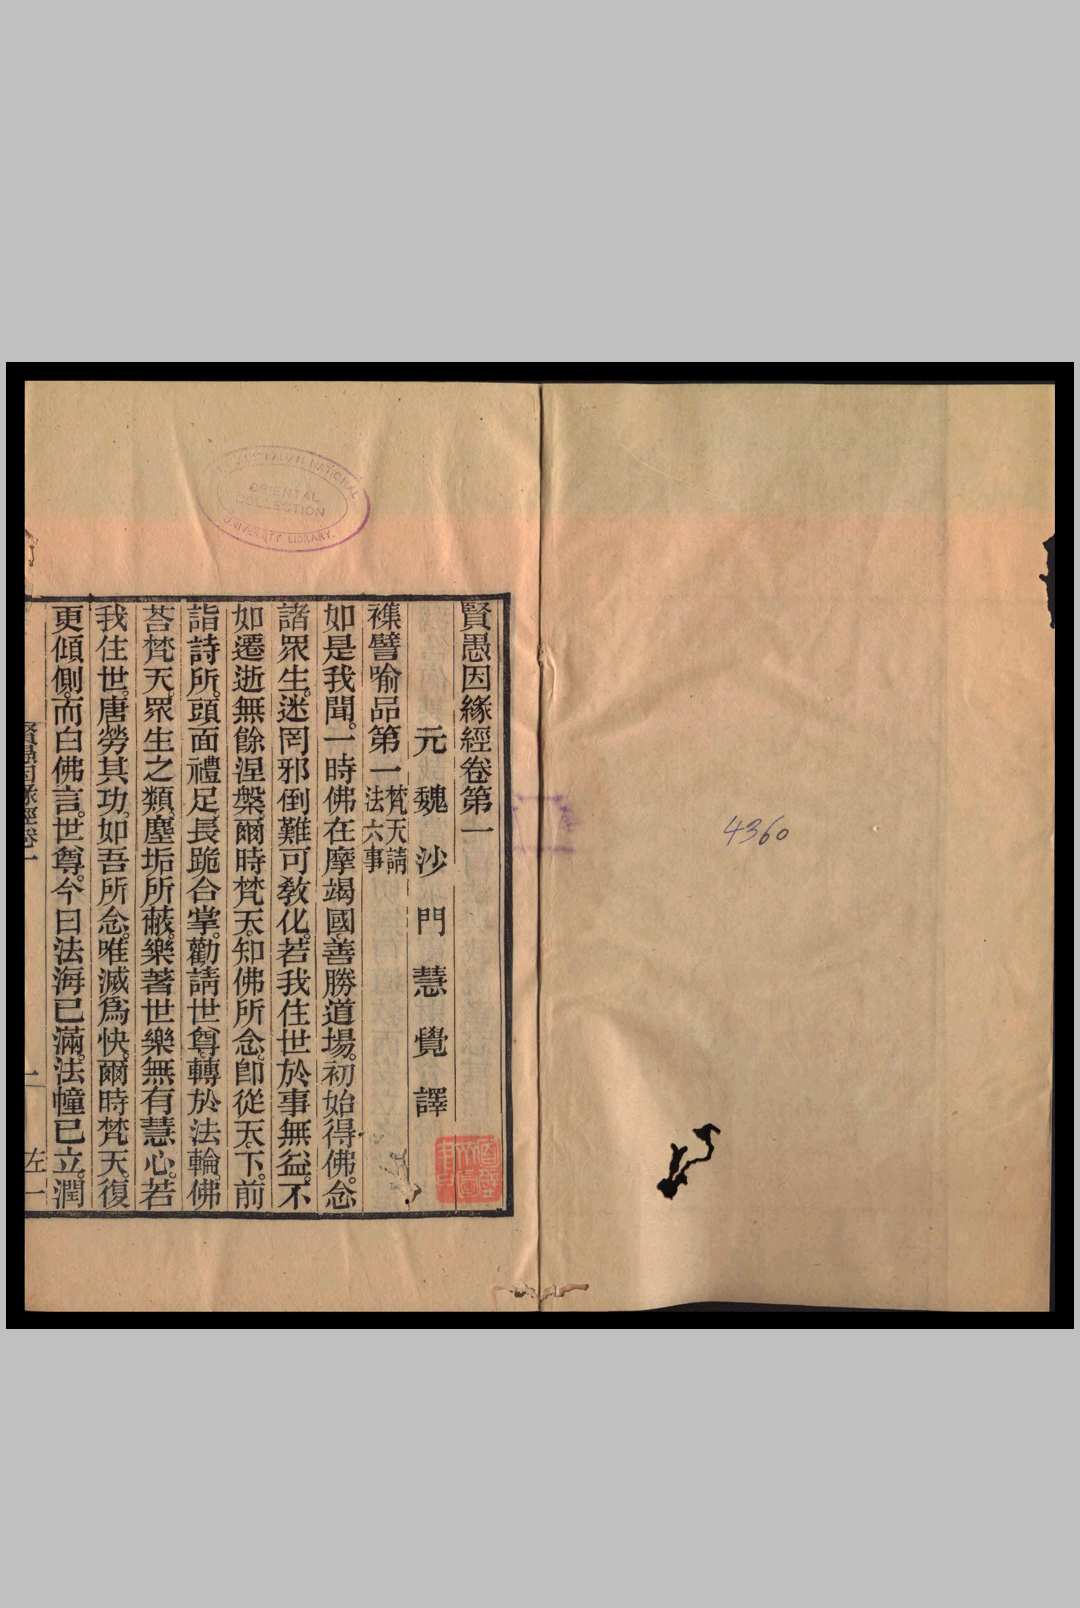 4360
賢愚因緣經卷第一
元魏沙門慧覺譯
襍譬喻品第一梵天請法六事
如是我聞。一時佛在摩竭國。善勝道場。初始得佛。念
諸眾生。迷罔邪倒。難可教化。若我住世。於事無益。不
如遷逝無餘涅槃。爾時梵天。知佛所念。即從天下。前
詣詩所。頭面禮足。長跪合掌。勸請世尊。轉於法輪。佛
荅梵天。眾生之類。塵垢所蔽。樂著世樂。無有慧心。若
我住世。唐勞其功。如吾所念。唯滅為快。爾時梵天。復
更傾側。而白佛言。世尊。今日法海已滿。法幢已立。潤
賢愚因緣經卷一
一
左一
NATIONAL
ORIENTAL
COLLECTION
UNIVERSITY LIBRARY.